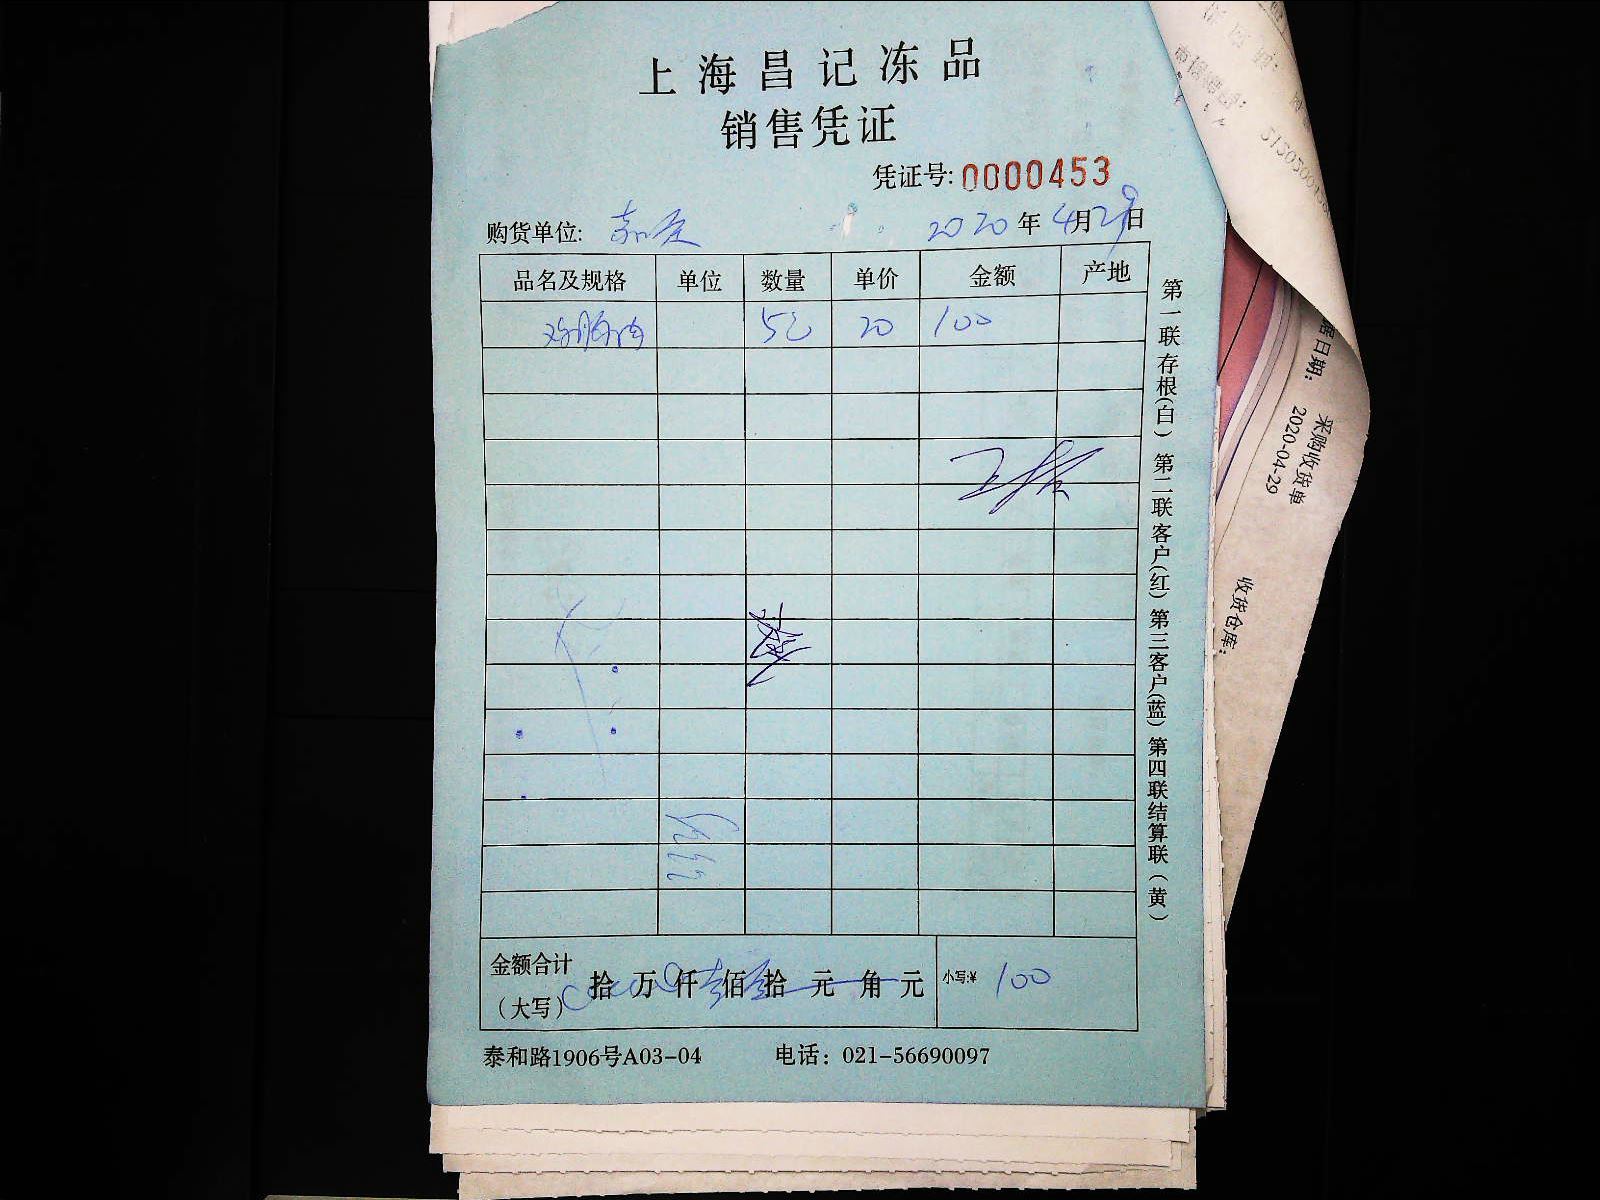 上海昌记冻品
销售凭证
凭证号: 0000453
购货单位: 2020年4月29日
品名及规格 单位 数量 单价 金额 产地
20 100
金额合计 拾万仟佰拾元角元 小写:¥ 100
（大写）
泰和路1906号A03-04 电话：021-56690097
第一联存根(白) 第二联客户(红) 第三客户(蓝) 第四联结算联（黄）
采购收货单
据日期: 2020-04-29
收货仓库: